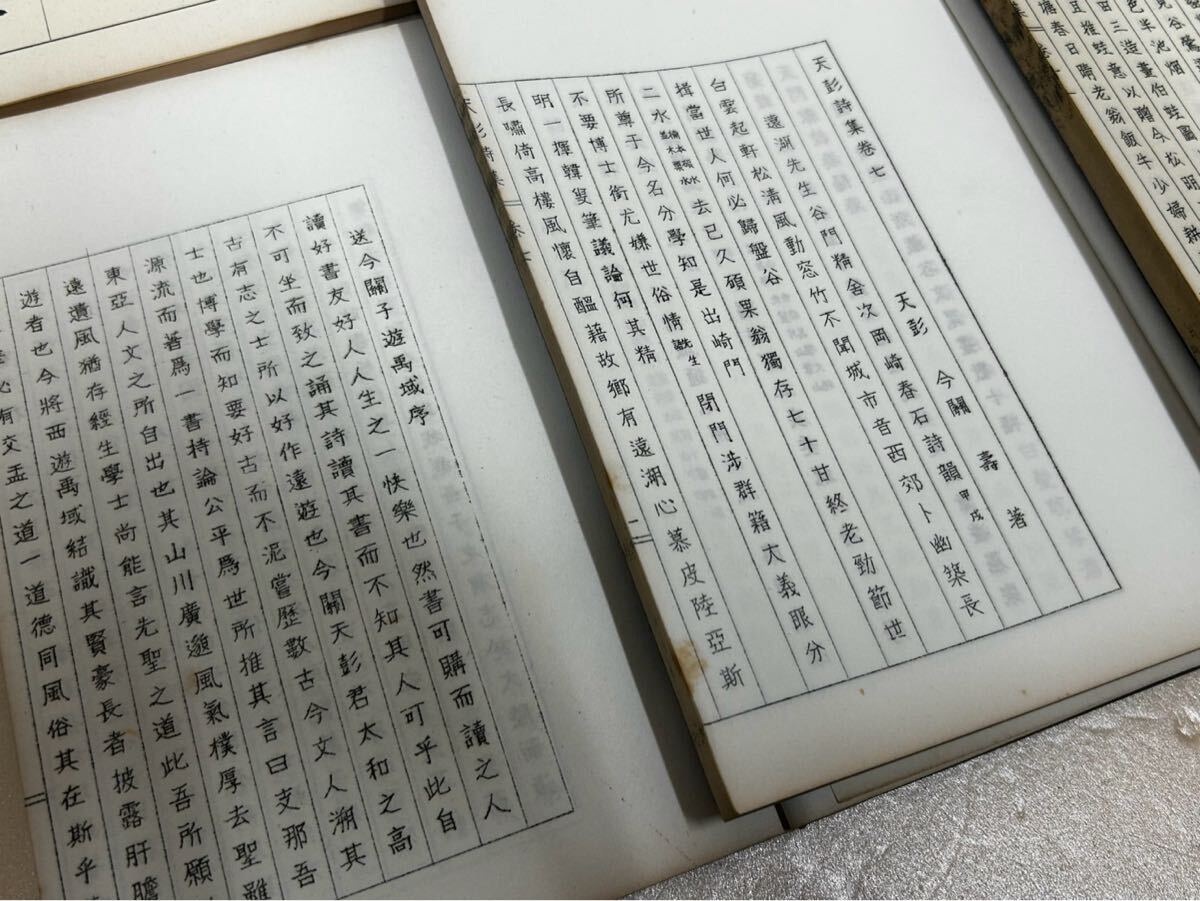 塘春日晴老翁飯牛少婦耕
天彭詩集卷七
天彭 今關 壽 著
遠湖先生谷門精舍次岡崎春石詩韻 甲戌
白雲起軒松清風動窓竹不聞城市音西郊卜幽築長
揖當世人何必歸盤谷
二水 楠本碩水 並木栗水 去已久碩果翁獨存七十甘終老勁節世
所尊于今名分學知是出崎門
不要博士銜尤嫌世俗情 閉門涉群籍大義眼分
明一揮韓叟筆議論何其精
長嘯倚高樓風懷自醞藉故鄉有遠湖心慕皮陸亞斯
天彭詩集 卷七 二
送今關子遊禹域序
讀好書友好人人生之一快樂也然書可購而讀之人
不可坐而致之誦其詩讀其書而不知其人可乎此自
古有志之士所以好作遠遊也今關天彭君太和之高
士也博學而知要好古而不泥嘗歷數古今文人溯其
源流而著爲一書持論公平爲世所推其言曰支那吾
東亞人文之所自出也其山川廣邈風氣樸厚去聖雖
遠遺風猶存經生學士尚能言先聖之道此吾所願
遊者也今將西遊禹域結識其賢豪長者披露肝膽
心有交孟之道一道德同風俗其在斯乎
二